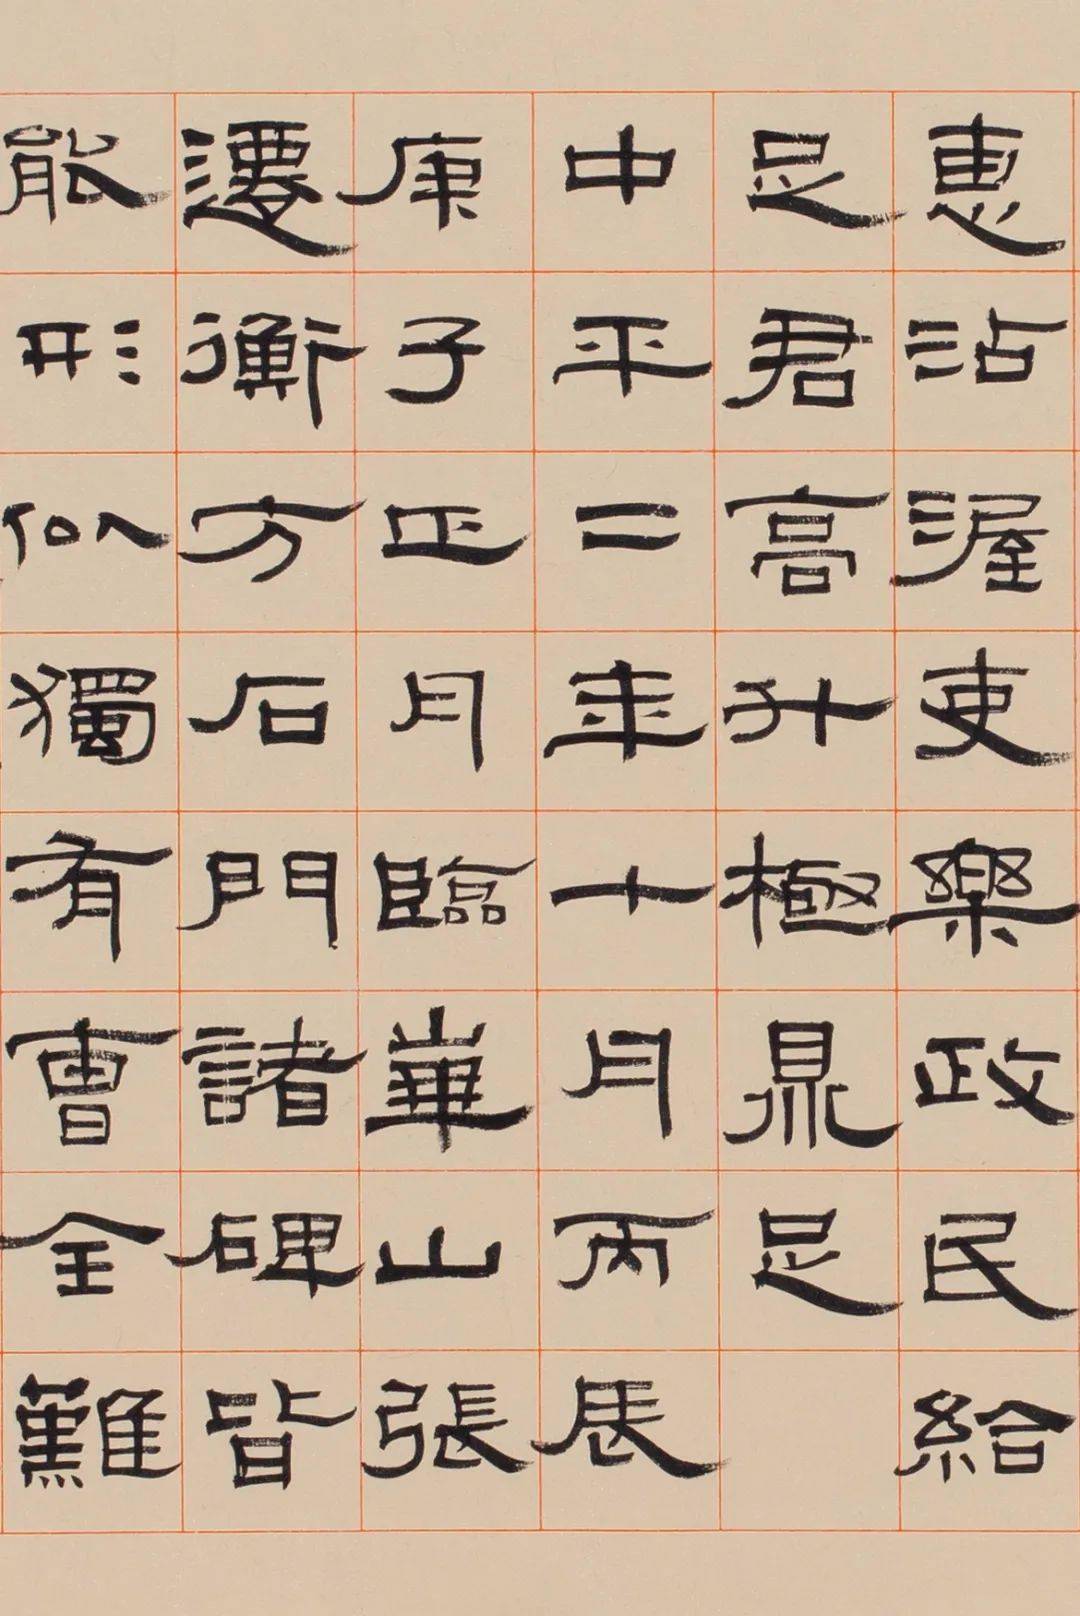 惠沾渥吏樂政民給
足君高升極鼎足
中平二年十月丙辰
庚子正月臨華山張
遷衡方石門諸碑皆
能形似獨有曹全難